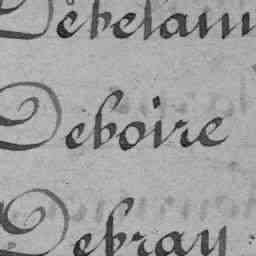 Debelam
Deboire
Debray